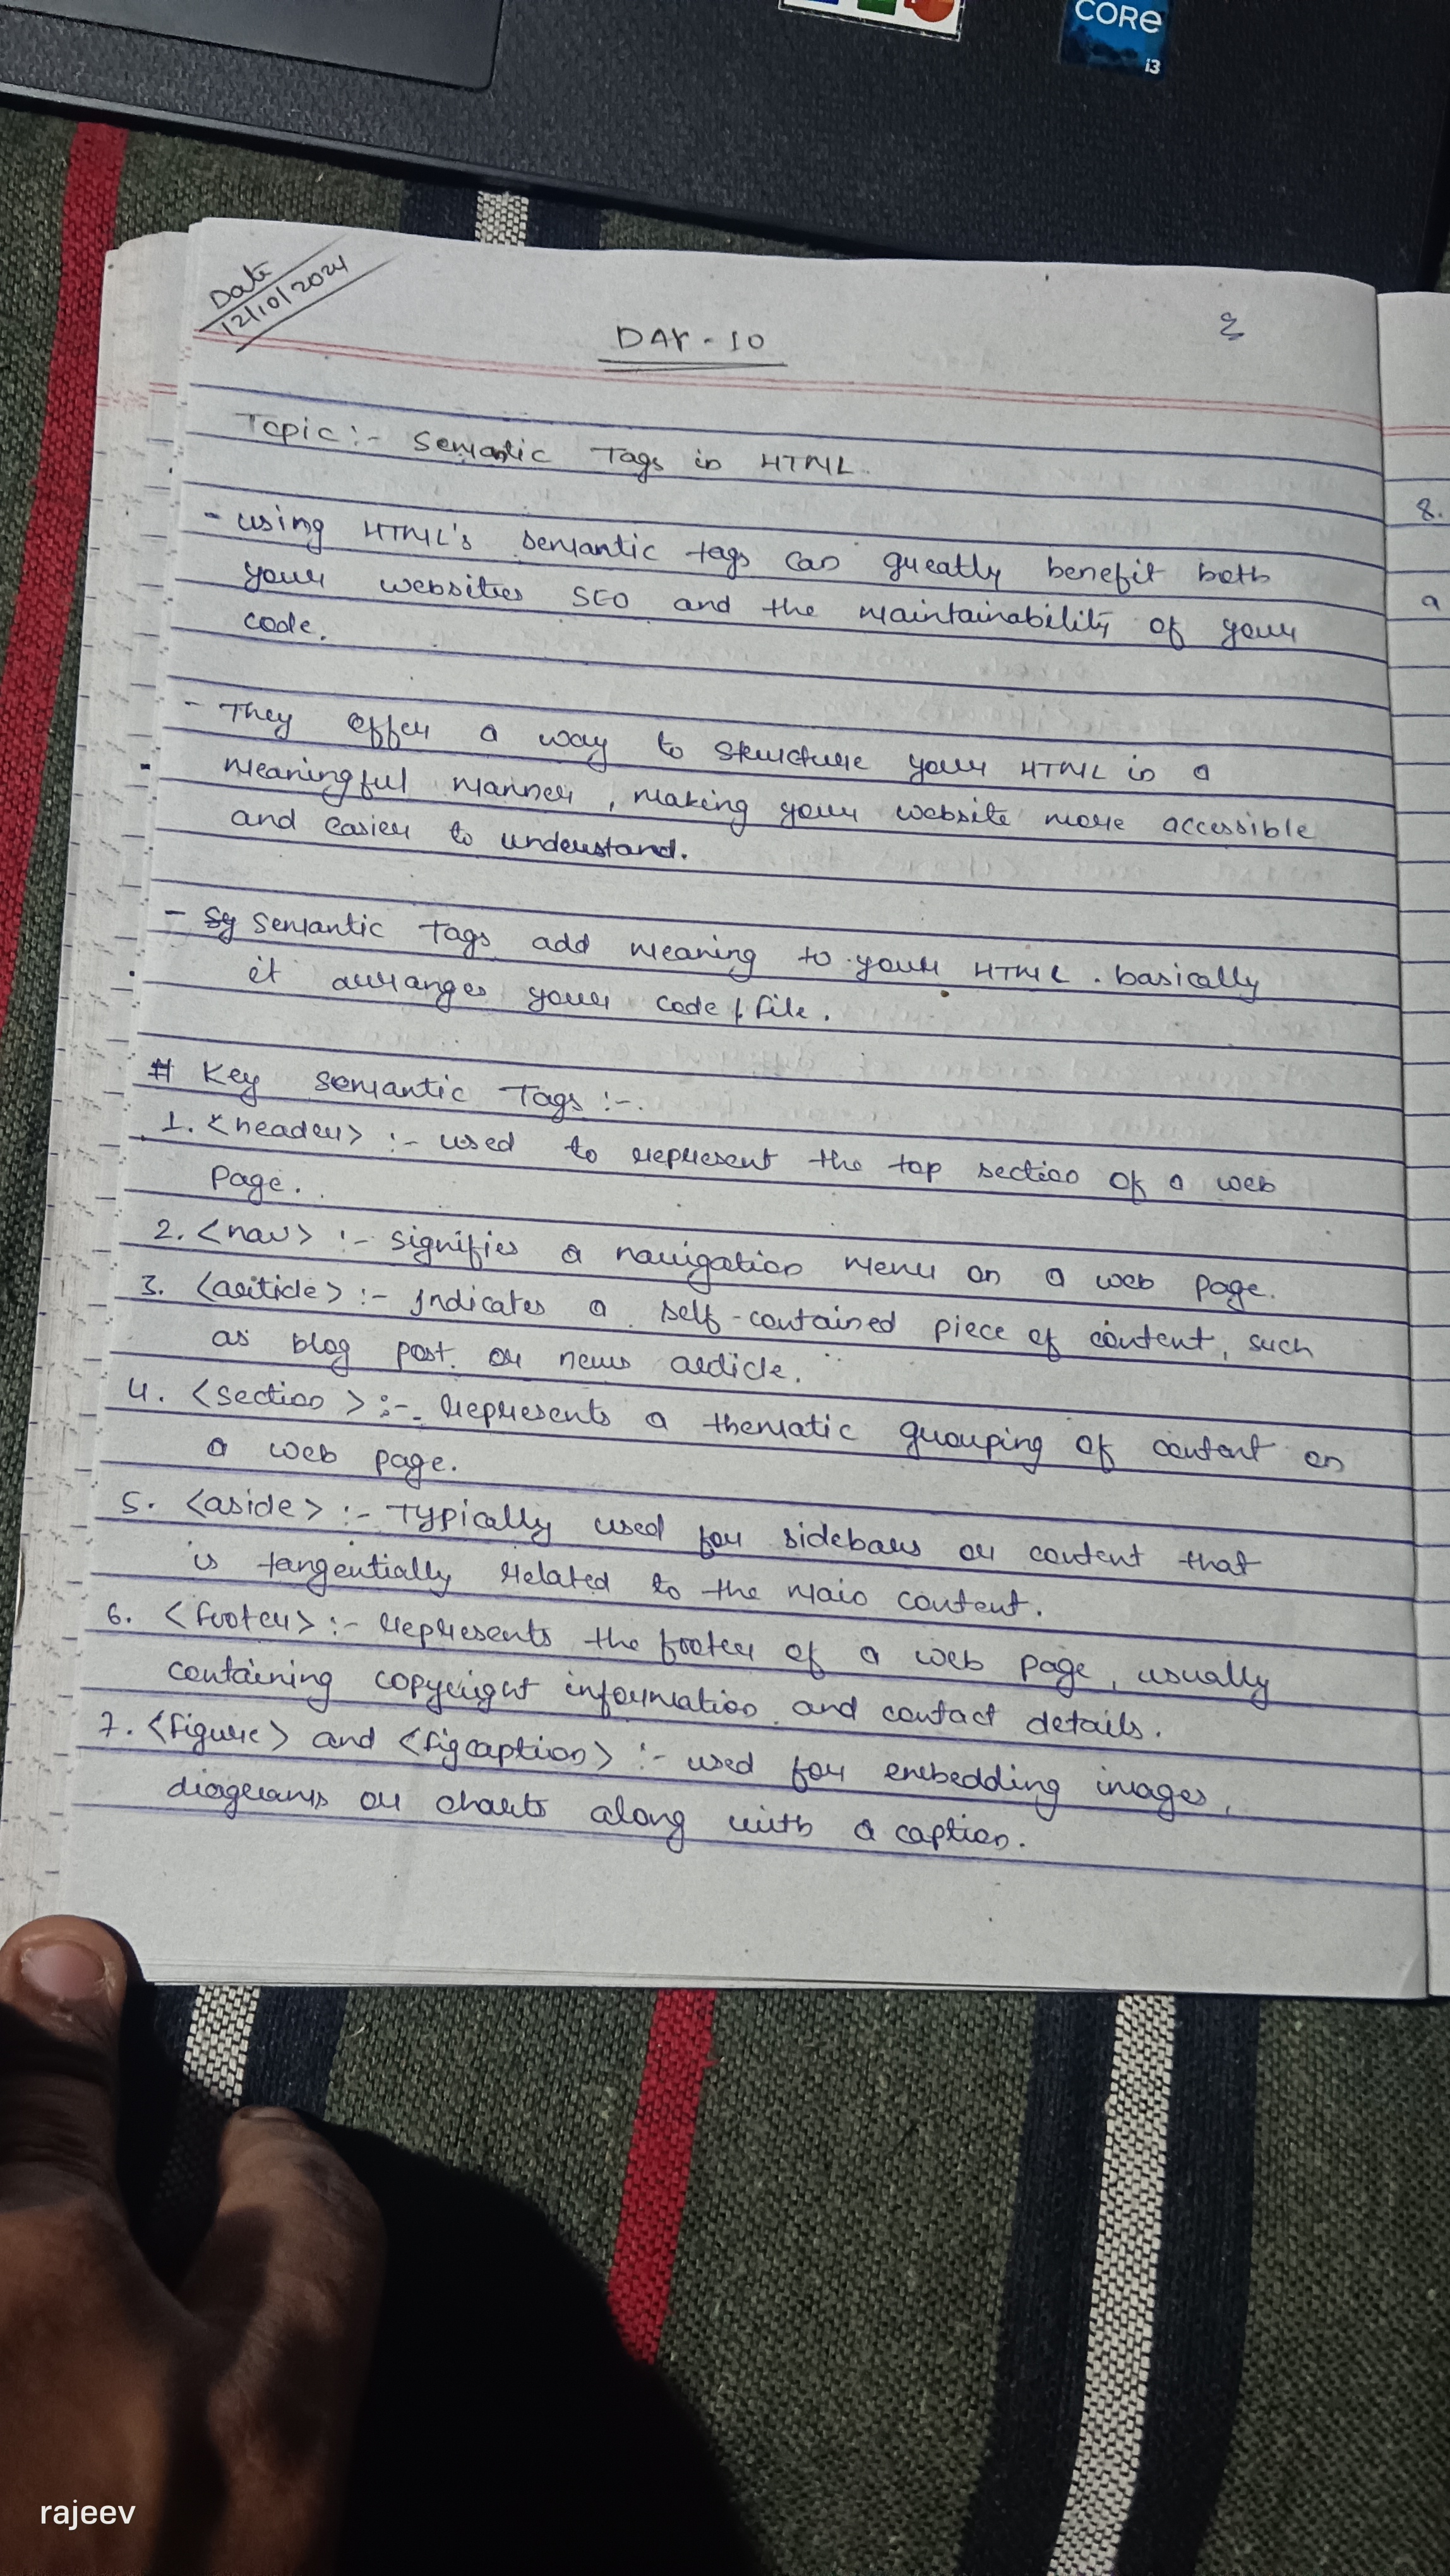 CORe
i3
Date
12/10/2024
DAY - 10
Topic :- Semantic Tags in HTML.
- using HTML's semantic tags can greatly benefit both
your websites SEO and the maintainability of your
code.
- They offer a way to structure your HTML in a
meaningful manner, making your website more accessible
and easier to understand.
- Sy Semantic Tags add meaning to your HTML. basically
it arranges your code / file.
# Key Semantic Tags :-
1. <header> :- used to represent the top section of a web
page.
2. <nav> :- signifies a navigation menu on a web page.
3. <article> :- Indicates a self-contained piece of content, such
as blog post or news article.
4. <section> :- Represents a thematic grouping of content on
a web page.
5. <aside> :- Typically used for sidebars or content that
is tangentially related to the main content.
6. <footer> :- Represents the footer of a web page, usually
containing copyright information and contact details.
7. <figure> and <figcaption> :- used for embedding images,
diagrams or charts along with a caption.
8.
9
rajeev